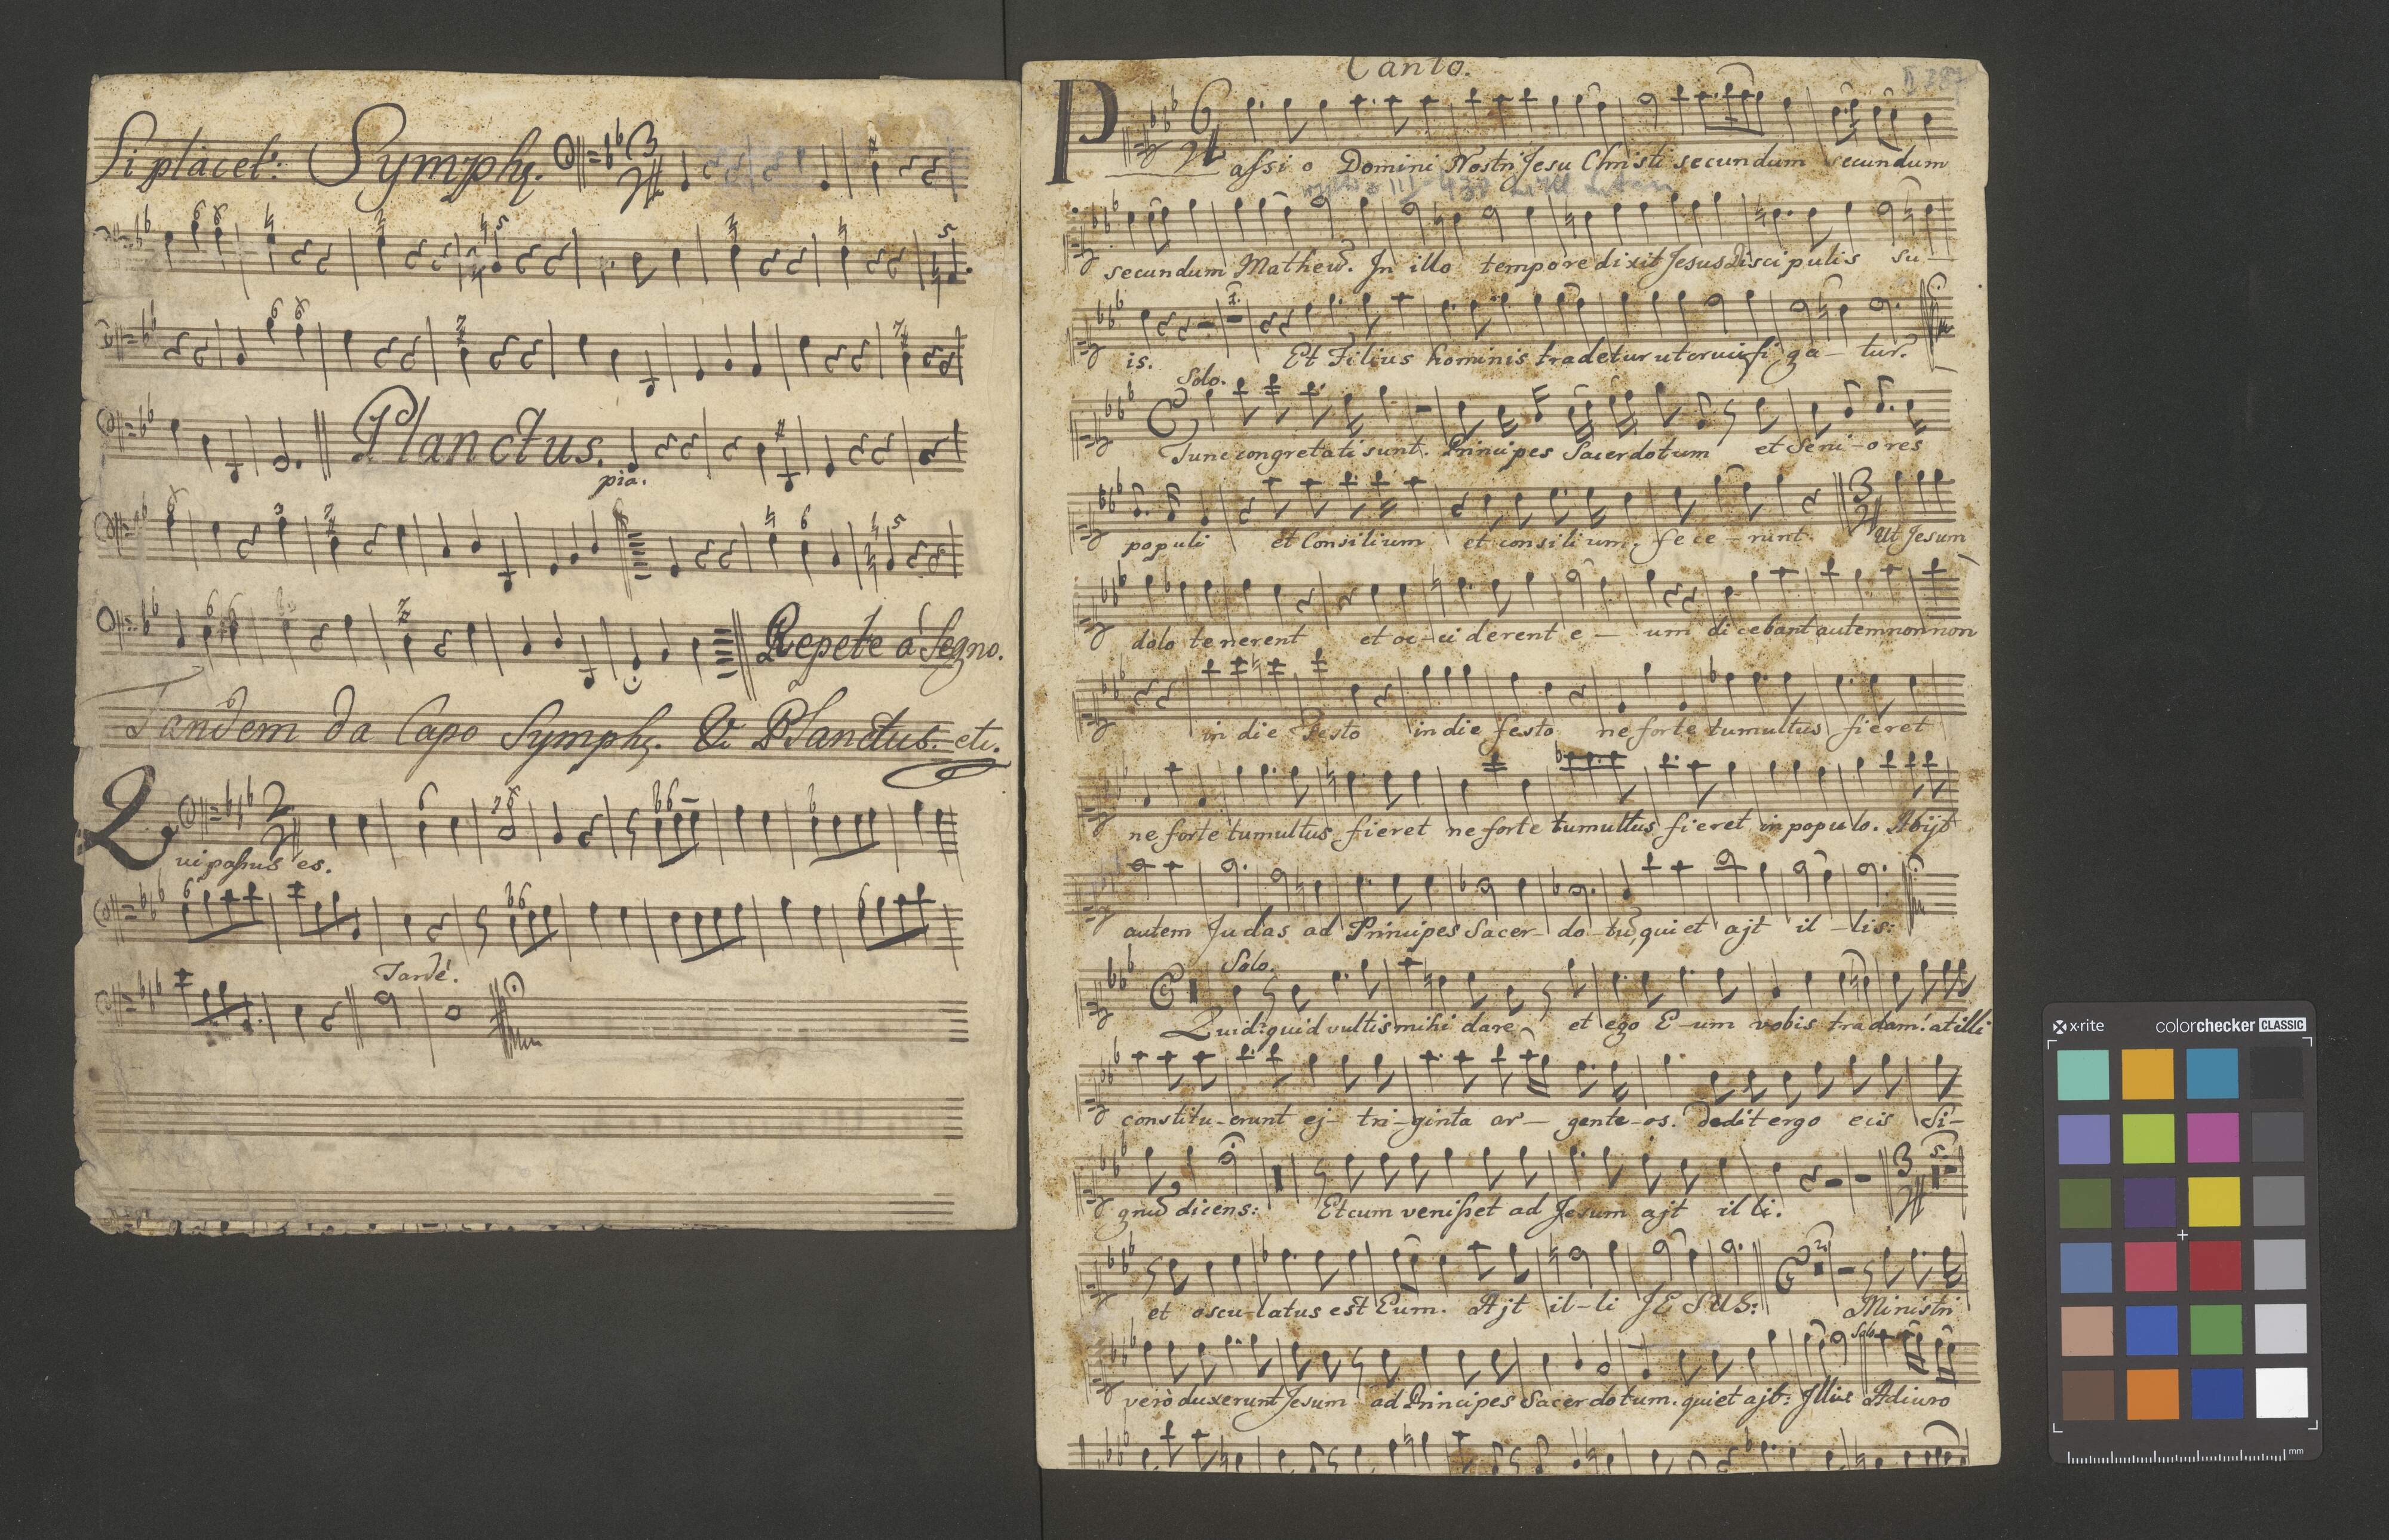 Si placet: Symph.
Planctus.
pia.
Repete à Segno.
Tandem da Capo Symph. & Planctus. etc.
Qui passus es.
Tardè.
Canto.
Passio Domini Nostri Jesu Christi secundum secundum
secundum Matheũ. In illo tempore dixit Jesus Discipulis su-
is. Et Filius hominis tradetur ut crucifiga-tur.
Solo.
Tunc congretati sunt. Principes Sacerdotum et Seni-ores
populi et Consilium et consilium, fece-runt. Ut Jesum
dolo tenerent et oc-ciderent e- um dicebant autem non non
in die Festo in die festo ne forte tumultus fieret
ne forte tumultus fieret ne forte tumultus fieret in populo. Abijt
autem Judas ad Principes Sacer-do-tũ, qui et ajt il-lis:
Solo.
Quid: quid vultis mihi dare et ego E-um vobis tradam! at illi
constitu-erunt ej- tri-ginta ar-gente-os. dedit ergo eis Si-
gnũ dicens: Et cum venisset ad Jesum ajt illi.
et oscu-latus est Eum. Ajt il-li JESUS: Ministri
Solo
verò duxerunt Jesum ad Principes Sacerdotum. qui et ajt: Illis Adiuro
x-rite colorchecker CLASSIC
mm